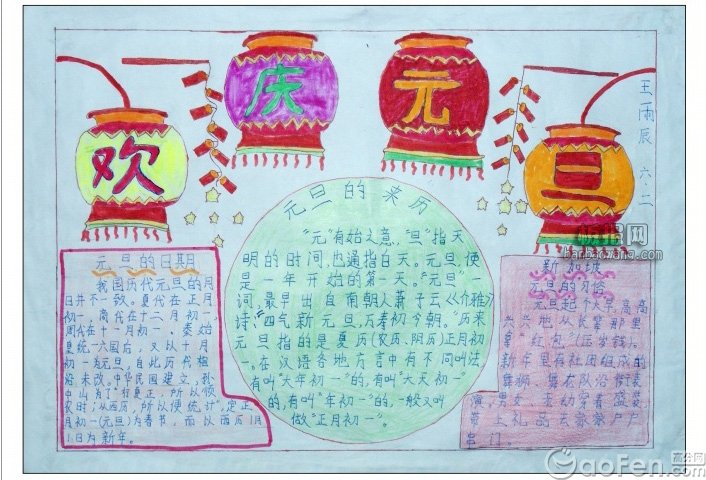 欢
庆
元
旦
王雨辰
六.二
元旦的日期
我国历代元旦的月
日并不一致。夏代在正月
初一，商代在十二月初一，
周代在十一月初一、秦始
夏统一六国后，又以十月
初一为元旦，自此历代相
沿未改。中华民国建立，孙
中山为了"行夏正，所以顺
农时；从西历，所以便统计"，定正
月初一(元旦)为春节，而以西历1月
1日为新年。
元旦的来历
"元"有始之意，"旦"指天
明的时间，也通指白天。元旦便
是一年开始的第一天。"元旦"一
词，最早出自南朝人萧子云《介雅》
诗："四气新元旦，万寿初今朝。"历来
元旦指的是夏历(农历、阴历)正月初
一。在汉语各地方言中有不同叫法，
有叫"大年初一"的，有叫"大天初一"
的，有叫"年初一"的，一般又叫
做"正月初一"。
新加坡
元旦的习俗
元旦起个大早，高高
兴兴地从长辈那里
拿"红包"(压岁钱)。
新年里有社团组成的
舞狮、舞龙队沿街
演，男女、老幼穿着盛装
带上礼品去家家户户
串门。
板报网
hanbaowang.com
高分网
GaoFen.com